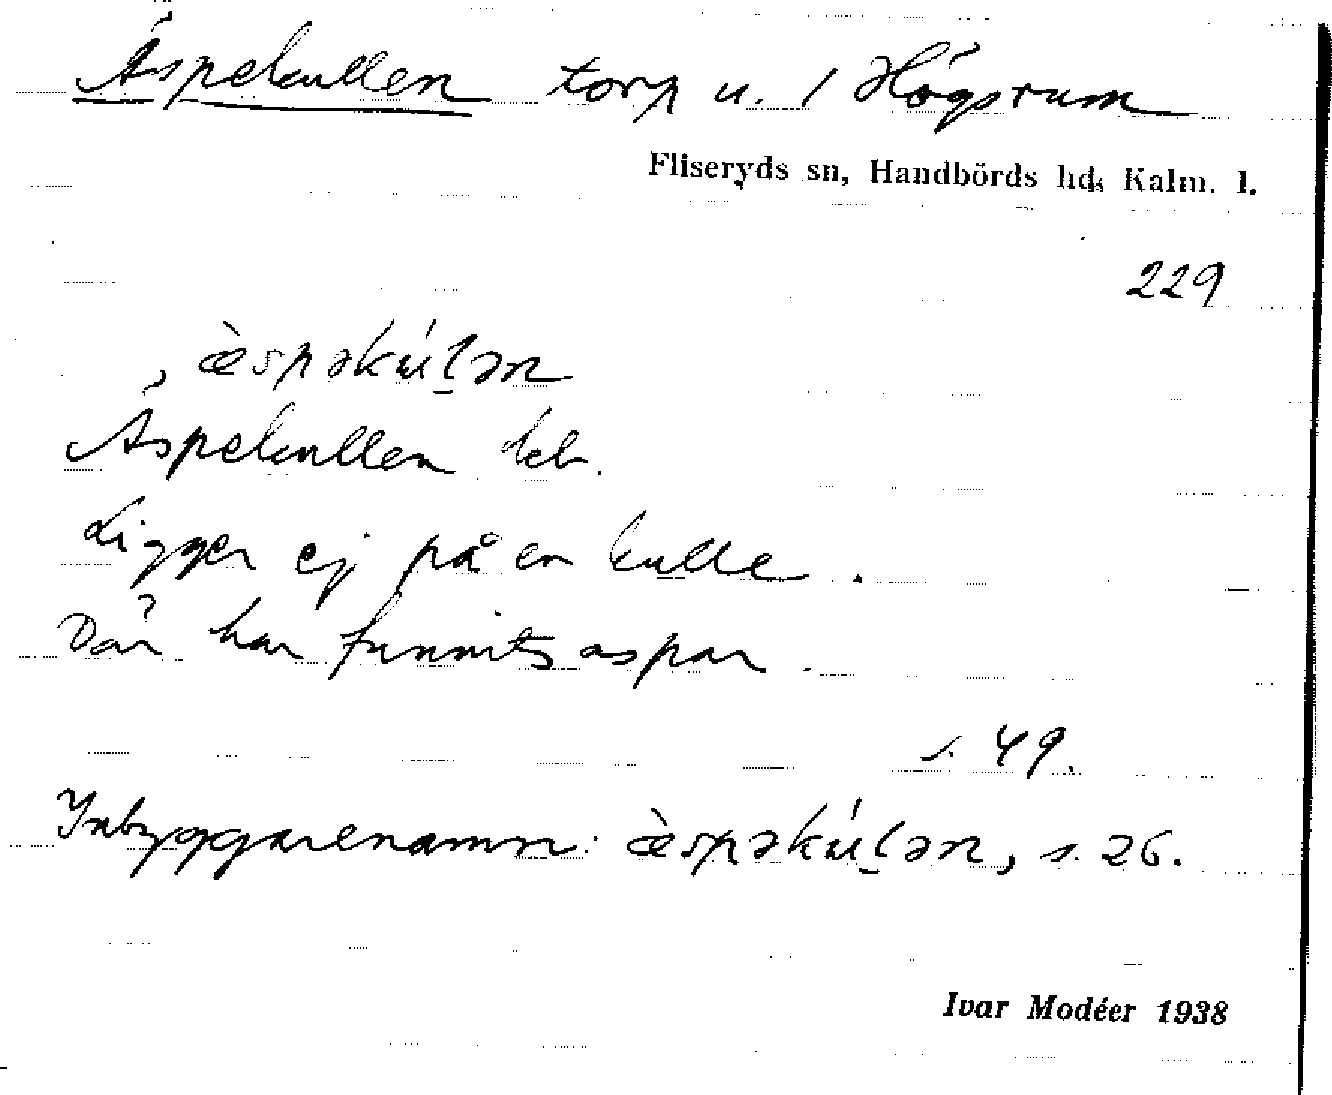 Äspekullen torp u. 1 Högsrum
Fliseryds sn, Handbörds hd, Kalm. l.
229
æ̀spəkúl̲ən
Äspekullen
Ligger ej på en kulle.
Där har funnits aspar.
s. 49.
Inbyggarenamn: æ̀spəkúl̲ən, s. 26.
Ivar Modéer 1938